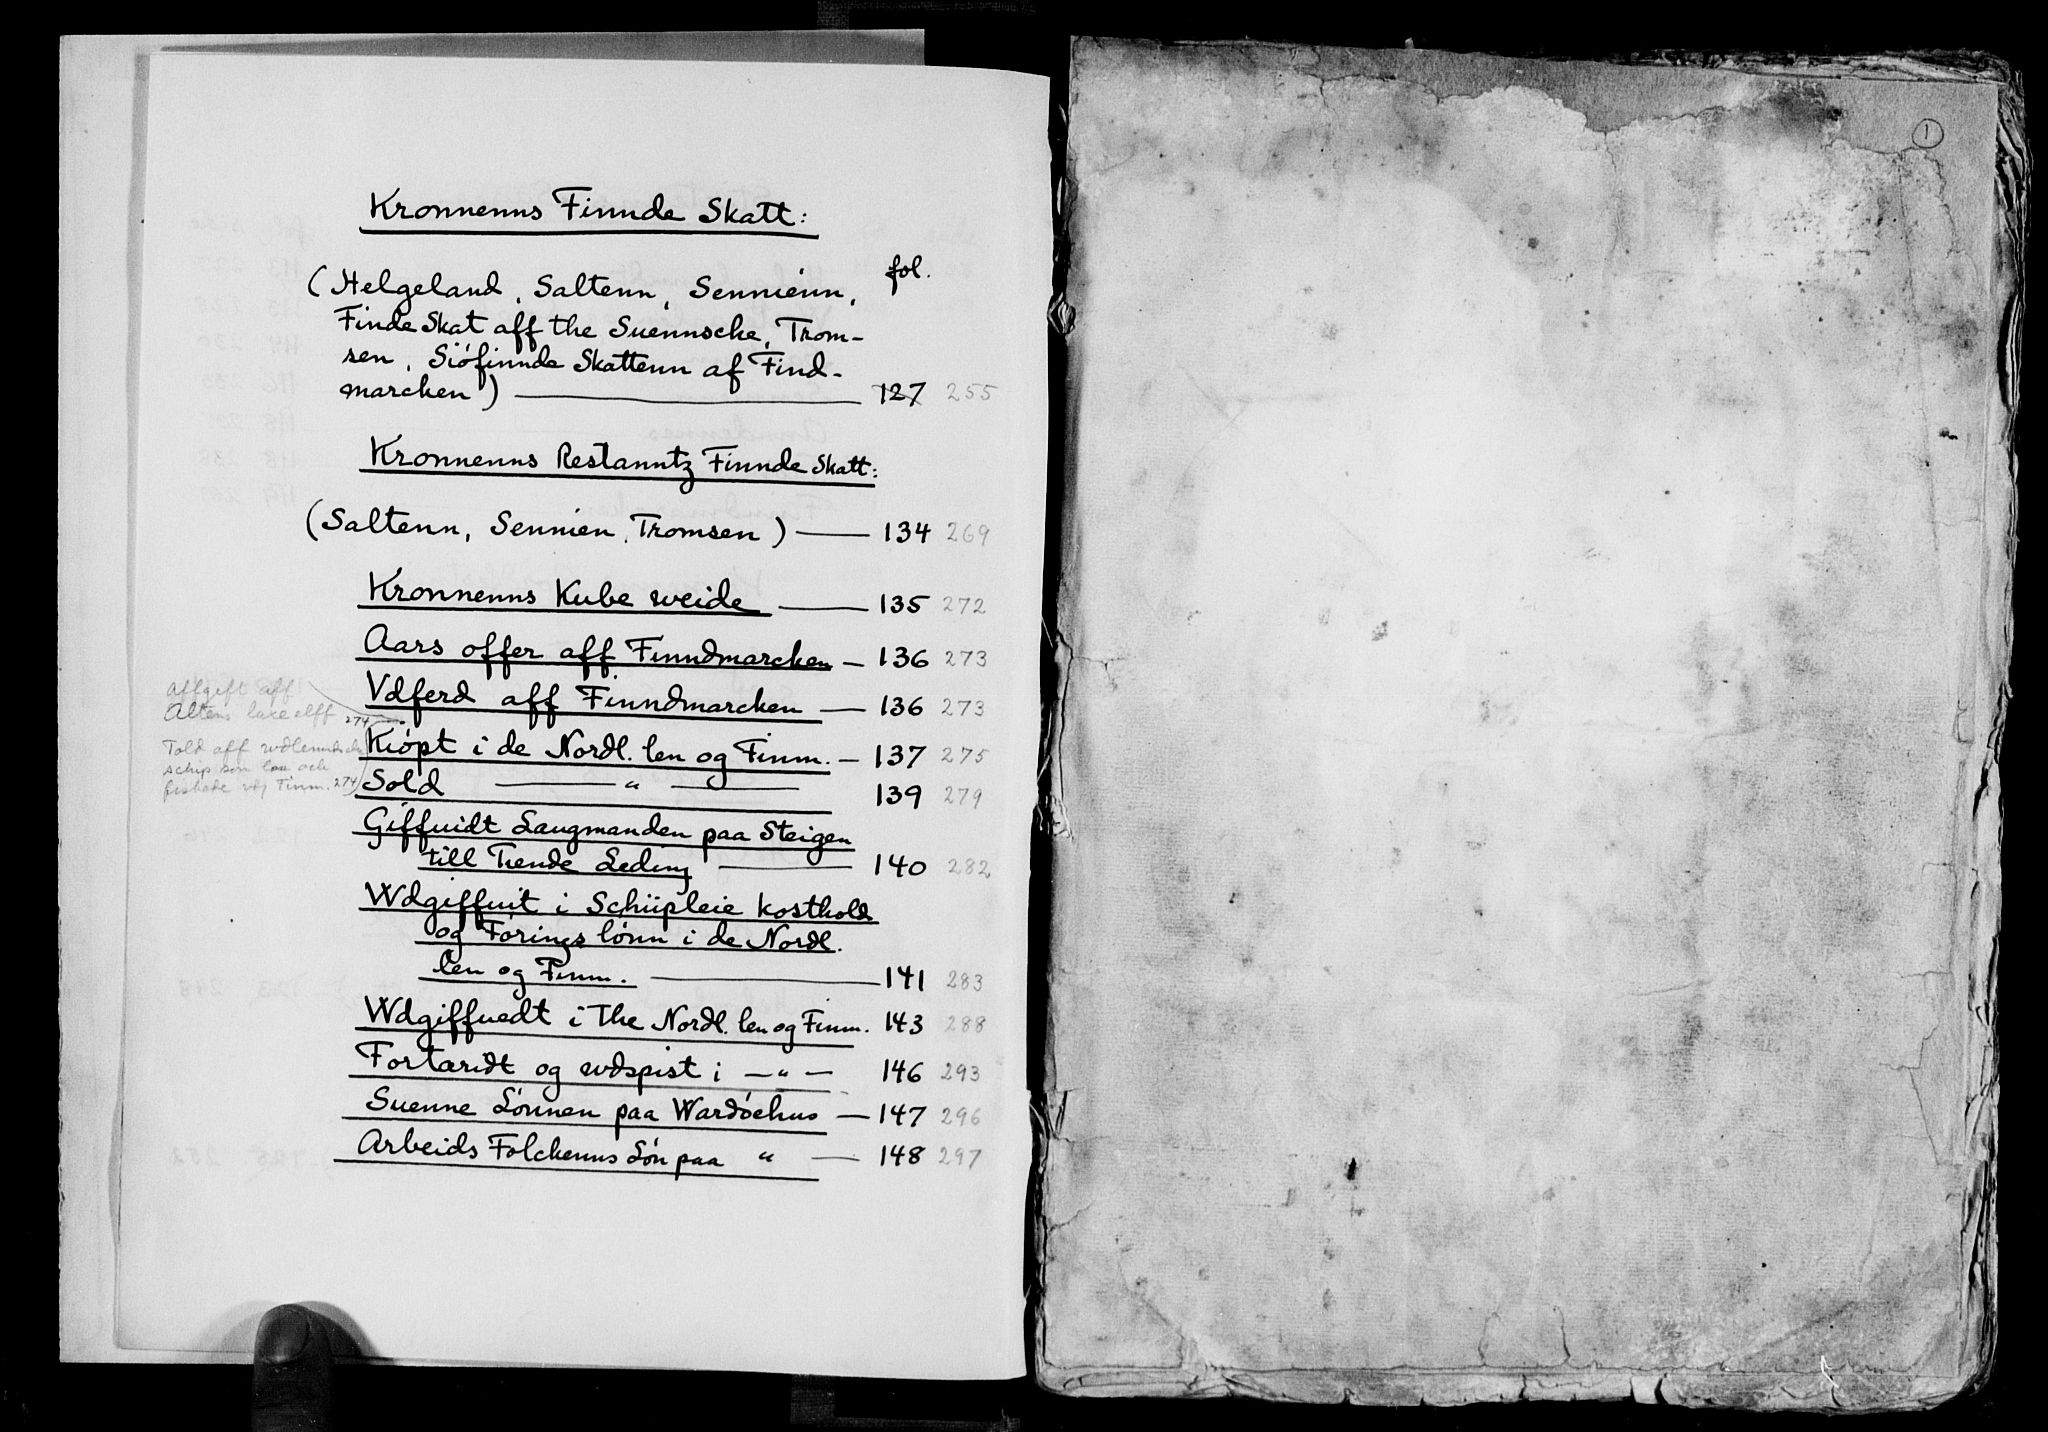 Kronnenns Finnde Skatt:
fol.
(Helgeland, Saltenn, Sennienn,
Finde Skat aff the Suennsche, Trom-
sen, Siöfinnde Skattenn af Find-
marcken) — 127 255
Kronnenns Restanntz Finnde Skatt:
(Saltenn, Sennien, Tromsen) — 134 269
Kronnenns Kube weide — 135 272
Aars offer aff Finndmarcken — 136 273
Vdferd aff Finndmarcken — 136 273
Affgift aff
Altens laxe elff 274
Told aff wdlenndsche
schip som laa och
fiskede vdj Finm. 274
Kiöpt i de Nordl. len og Finm. — 137 275
Sold — " — 139 279
Giffuidt Laugmanden paa Steigen
till Tiende Leding — 140 282
Wdgiffuit i Schiipleie kosthold
og Förings lönn i de Nordl.
len og Finm. — 141 283
Wdgiffuedt i The Nordl. len og Finm. 143 288
Fortæridt og wdspist i — " — 146 293
Suenne Lönnen paa Wardöehus — 147 296
Arbeids Folckenns Lön paa " — 148 297
1